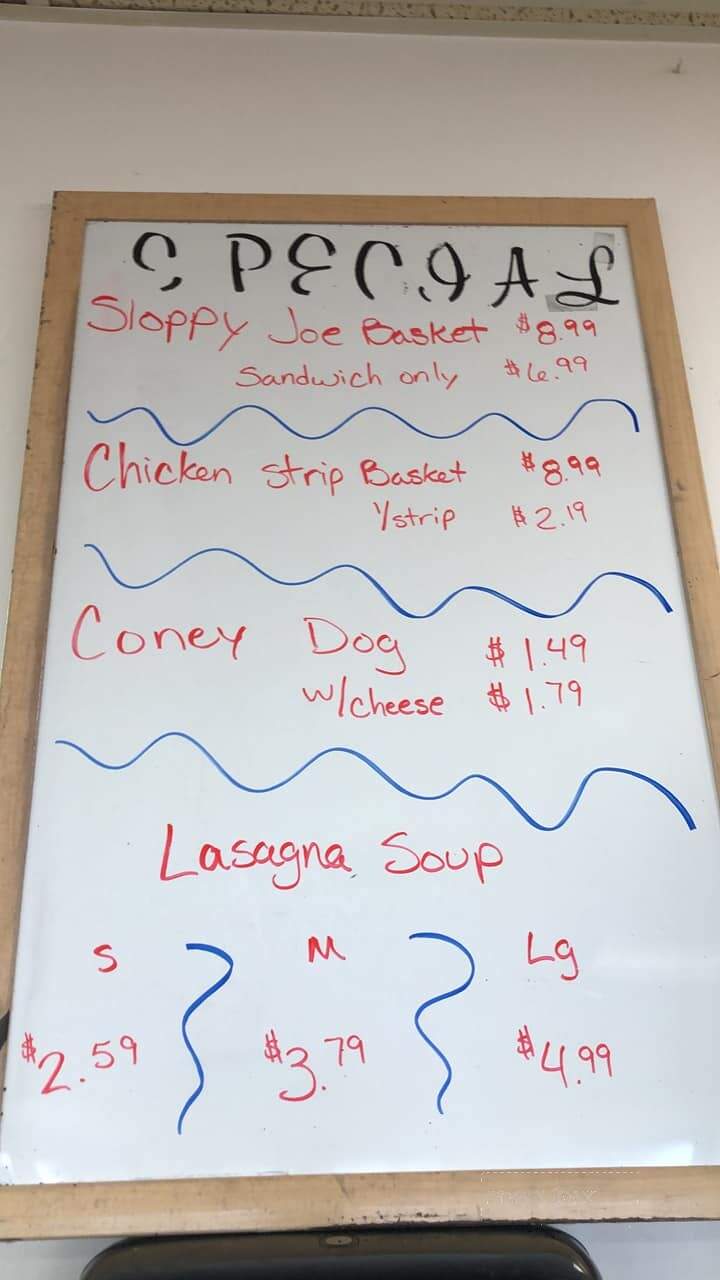 SPECIAL
Sloppy Joe Basket $8.99
Sandwich only $6.99
Chicken Strip Basket $8.99
1/strip $2.19
Coney Dog $1.49
w/cheese $1.79
Lasagna Soup
S M Lg
$2.59 $3.79 $4.99